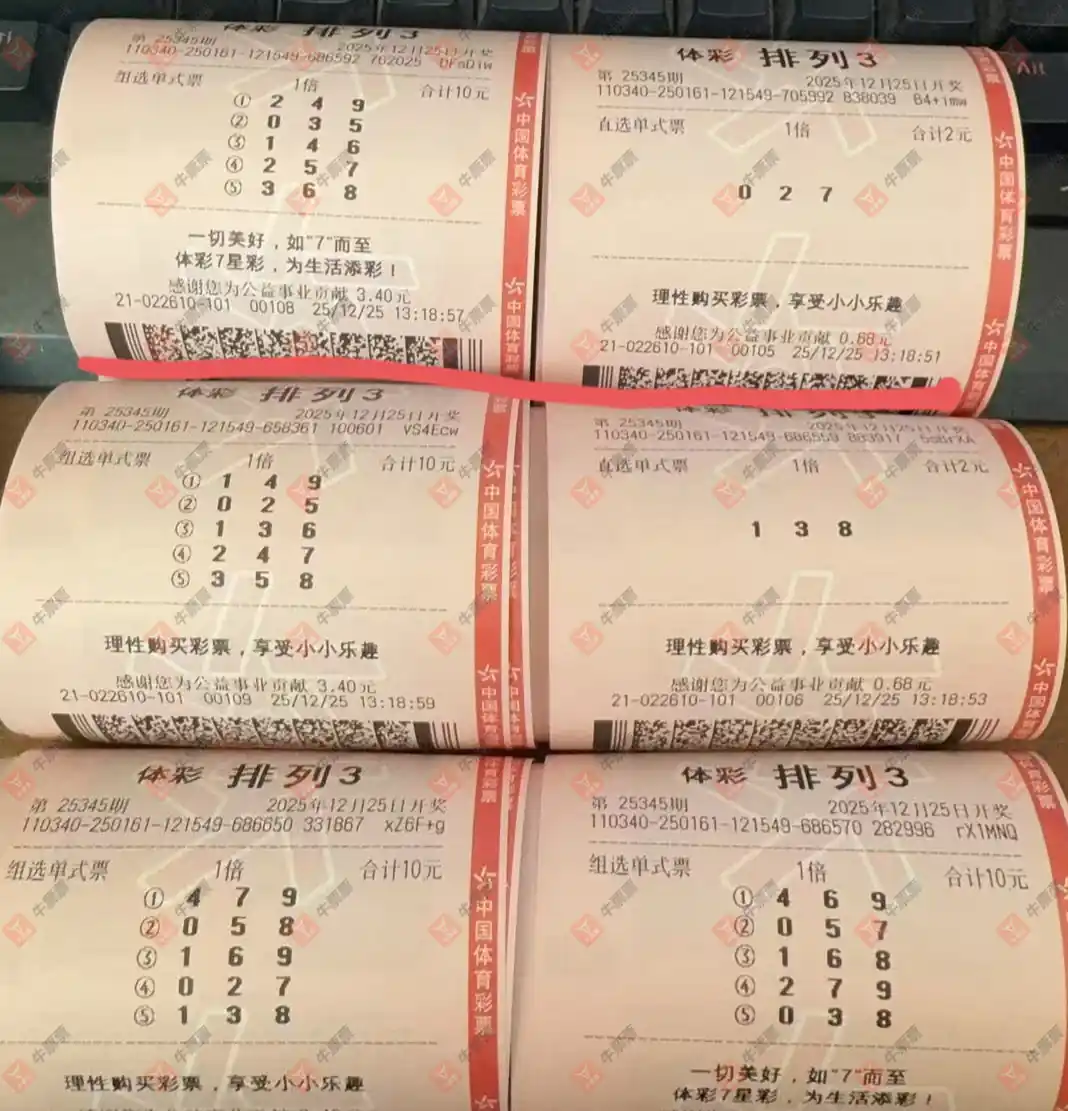 体彩 排列3
第 25345期 2025年12月25日开奖
110340-250161-121549-686592 762025 DFnDiw
组选单式票 1倍 合计10元
① 2 4 9
② 0 3 5
③ 1 4 6
④ 2 5 7
⑤ 3 6 8
一切美好，如"7"而至
体彩7星彩，为生活添彩！
感谢您为公益事业贡献 3.40元
21-022610-101 00108 25/12/25 13:18:57
中国体育彩票
体彩 排列3
第 25345期 2025年12月25日开奖
110340-250161-121549-705992 838039 B4+imw
直选单式票 1倍 合计2元
0 2 7
理性购买彩票，享受小小乐趣
感谢您为公益事业贡献 0.68元
21-022610-101 00105 25/12/25 13:18:51
中国体育彩票
体彩 排列3
第 25345期 2025年12月25日开奖
110340-250161-121549-658361 100601 VS4Ecw
组选单式票 1倍 合计10元
① 1 4 9
② 0 2 5
③ 1 3 6
④ 2 4 7
⑤ 3 5 8
理性购买彩票，享受小小乐趣
感谢您为公益事业贡献 3.40元
21-022610-101 00109 25/12/25 13:18:59
中国体育彩票
体彩 排列3
第 25345期 2025年12月25日开奖
110340-250161-121549-686559 883917
直选单式票 1倍 合计2元
1 3 8
理性购买彩票，享受小小乐趣
感谢您为公益事业贡献 0.68元
21-022610-101 00106 25/12/25 13:18:53
中国体育彩票
体彩 排列3
第 25345期 2025年12月25日开奖
110340-250161-121549-686650 331867 xZ6F+g
组选单式票 1倍 合计10元
① 4 7 9
② 0 5 8
③ 1 6 9
④ 0 2 7
⑤ 1 3 8
理性购买彩票，享受小小乐趣
中国体育彩票
体彩 排列3
第 25345期 2025年12月25日开奖
110340-250161-121549-686570 282996 rX1MNQ
组选单式票 1倍 合计10元
① 4 6 9
② 0 5 7
③ 1 6 8
④ 2 7 9
⑤ 0 3 8
一切美好，如"7"而至
体彩7星彩，为生活添彩！
牛票票